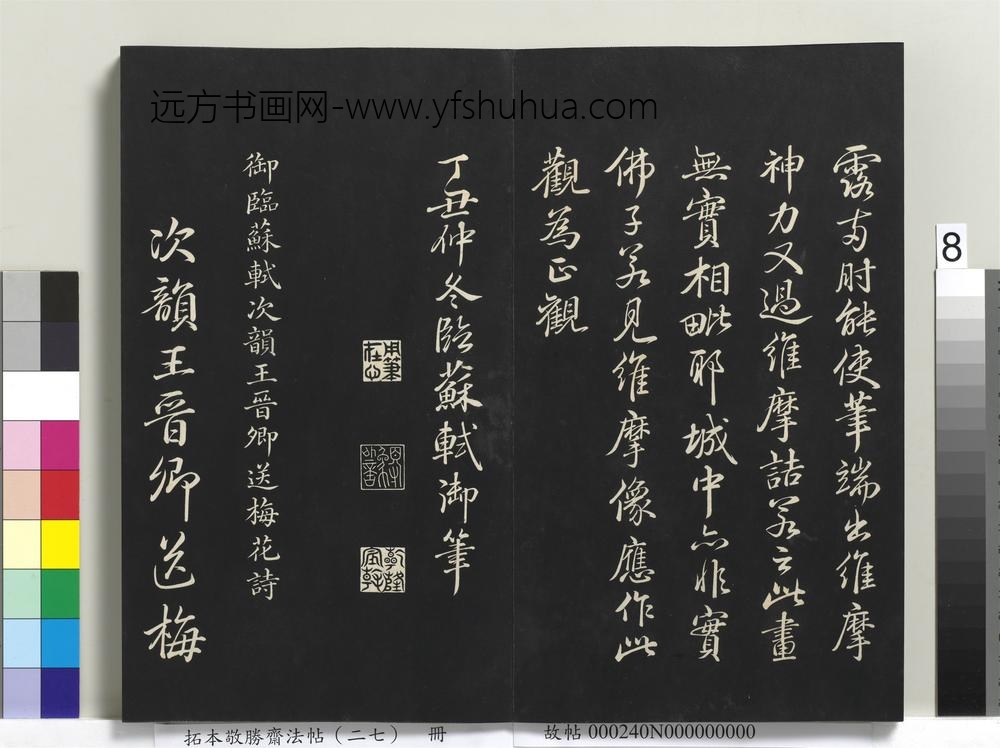 远方书画网-www.yfshuhua.com
露有时能使筆端出維摩
神力又過維摩詰若云此畫
無實相毗耶城中亦非實
佛子若見維摩像應作此
觀為正觀
丁丑仲冬臨蘇軾御筆
用筆在心
乾隆宸翰
御臨蘇軾次韻王晉卿送梅花詩
次韻王晉卿送梅
8
拓本敬勝齋法帖(二七) 冊
故帖 000240N000000000